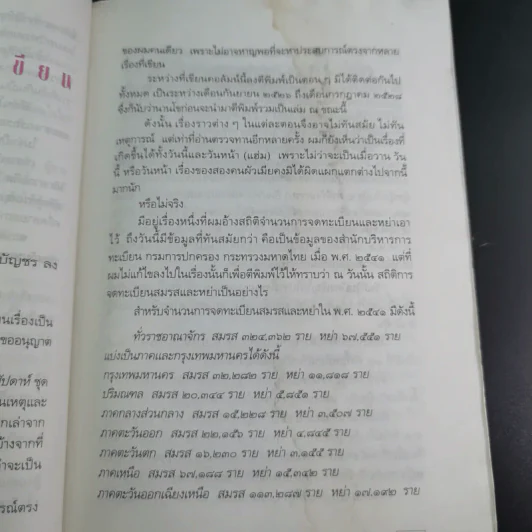 ของผมคนเดียว เพราะไม่อาจหาญพอที่จะหาประสบการณ์ตรงจากหลาย
เรื่องที่เขียน
ระหว่างที่เขียนคอลัมน์นี้ลงตีพิมพ์เป็นตอน ๆ มิได้ติดต่อกันไป
ทั้งหมด เป็นระหว่างเดือนกันยายน ๒๕๒๖ ถึงเดือนกรกฎาคม ๒๕๒๘
ซึ่งก็นับว่านานโขก่อนจะนำมาตีพิมพ์รวมเป็นเล่ม ณ ขณะนี้
ดังนั้น เรื่องราวต่าง ๆ ในแต่ละตอนจึงอาจไม่ทันสมัย ไม่ทัน
เหตุการณ์ แต่เท่าที่อ่านตรวจทานอีกหลายครั้ง ผมก็ยังเห็นว่าเป็นเรื่องที่
เกิดขึ้นได้ทั้งวันนี้และวันหน้า (แฮ่ม) เพราะไม่ว่าจะเป็นเมื่อวาน วัน
นี้ หรือวันหน้า เรื่องของสองคนผัวเมียคงมิได้ผิดแผกแตกต่างไปจากนี้
มากนัก
หรือไม่จริง
มีอยู่เรื่องหนึ่งที่ผมอ้างสถิติจำนวนการจดทะเบียนและหย่าเอา
ไว้ ถึงวันนี้มีข้อมูลที่ทันสมัยกว่า คือเป็นข้อมูลของสำนักบริหารการ
ทะเบียน กรมการปกครอง กระทรวงมหาดไทย เมื่อ พ.ศ. ๒๕๔๑ แต่ที่
ผมไม่แก้ไขลงไปในเรื่องนั้นก็เพื่อตีพิมพ์ไว้ให้ทราบว่า ณ วันนั้น สถิติการ
จดทะเบียนสมรสและหย่าเป็นอย่างไร
สำหรับจำนวนการจดทะเบียนสมรสและหย่าใน พ.ศ. ๒๕๔๑ มีดังนี้
ทั่วราชอาณาจักร สมรส ๓๒๔,๓๖๒ ราย หย่า ๖๗,๕๕๑ ราย
แบ่งเป็นภาคและกรุงเทพมหานครได้ดังนี้
กรุงเทพมหานคร สมรส ๓๒,๒๘๒ ราย หย่า ๑๑,๘๑๘ ราย
ปริมณฑล สมรส ๒๐,๓๔๔ ราย หย่า ๕,๘๕๑ ราย
ภาคกลางส่วนกลาง สมรส ๑๕,๒๒๘ ราย หย่า ๓,๕๐๗ ราย
ภาคตะวันออก สมรส ๒๒,๑๕๖ ราย หย่า ๔,๘๔๕ ราย
ภาคตะวันตก สมรส ๑๖,๒๓๐ ราย หย่า ๓,๑๕๕ ราย
ภาคเหนือ สมรส ๖๗,๑๘๘ ราย หย่า ๑๕,๓๔๒ ราย
ภาคตะวันออกเฉียงเหนือ สมรส ๑๑๓,๒๘๗ ราย หย่า ๑๗,๑๙๒ ราย
ขียน
บัญชร ลง
นเรื่องเป็น
ขออนุญาต
ัปดาห์ ชุด
นเหตุและ
กเล่าจาก
้างจากที่
าจะเป็น
รณ์ตรง